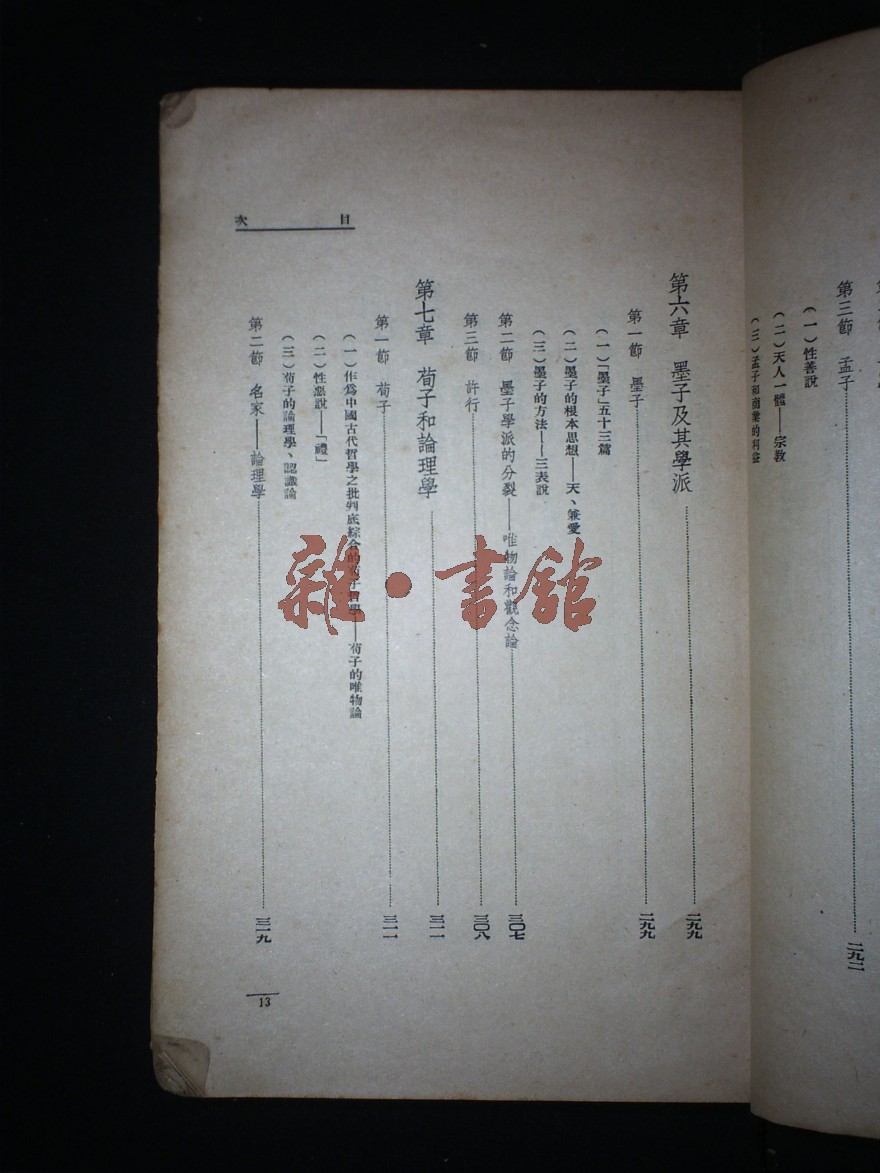 第三節　孟子 二九二
（一）性善說
（二）天人一體——宗敎
（三）孟子和商業的利益
目次
第六章　墨子及其學派 二九九
第一節　墨子 二九九
（一）「墨子」五十三篇
（二）墨子的根本思想——天、兼愛
（三）墨子的方法——三表說
第二節　墨子學派的分裂——唯物論和觀念論 三〇七
第三節　許行 三〇八
第七章　荀子和論理學 三一一
第一節　荀子 三一一
（一）作爲中國古代哲學之批判底綜合的荀子哲學——荀子的唯物論
（二）性惡說——「禮」
（三）荀子的論理學、認識論
第二節　名家——論理學 三一九
13
雜·書館